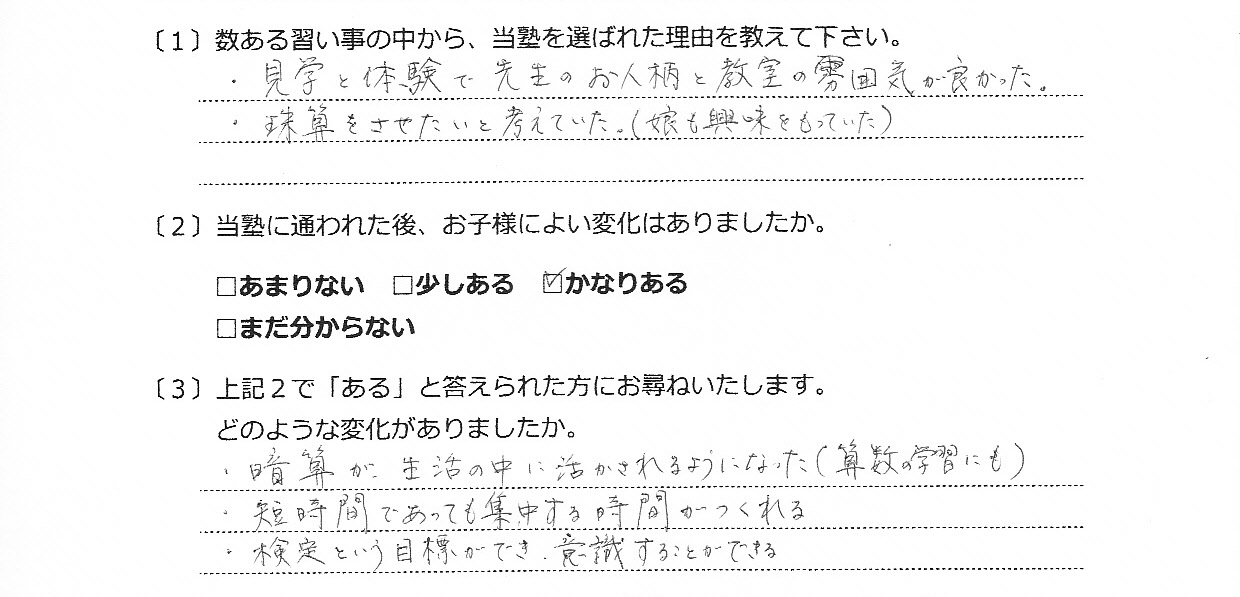 〔１〕数ある習い事の中から、当塾を選ばれた理由を教えて下さい。
・見学と体験で先生のお人柄と教室の雰囲気が良かった。
・珠算をさせたいと考えていた。(娘も興味をもっていた)
〔２〕当塾に通われた後、お子様によい変化はありましたか。
□あまりない　□少しある　☑かなりある
□まだ分からない
〔３〕上記２で「ある」と答えられた方にお尋ねいたします。
どのような変化がありましたか。
・暗算が、生活の中に活かされるようになった(算数の学習にも)
・短時間であっても集中する時間がつくれる
・検定という目標ができ、意識することができる